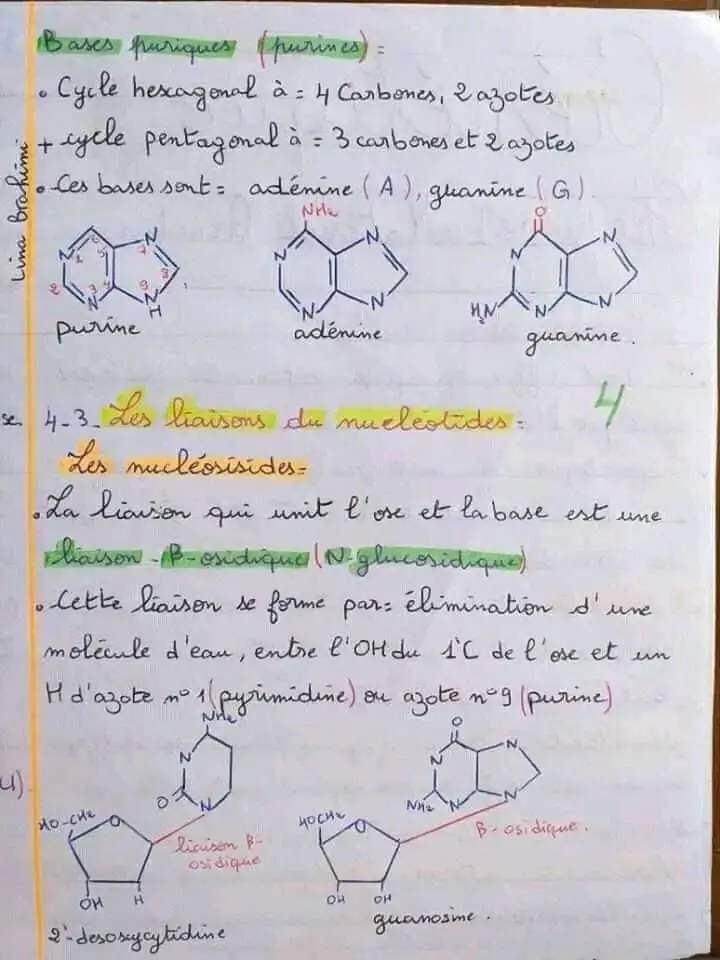 Bases puriques (purines) =
• Cycle hexagonal à = 4 Carbones, 2 azotes
+ cycle pentagonal à = 3 carbones et 2 azotes
• Ces bases sont = adénine (A), guanine (G).
Lina Brahimi
N 1 2 3 N 4 5 6 N 7 8 9 N H
NH₂ N N N N
O N N H₂N N N
purine
adénine
guanine.
4
se.
4-3- Les liaisons du nucléotides =
Les nucléosisides =
• La liaison qui unit l'ose et la base est une
liaison - β-osidique (N-glucosidique)
• Cette liaison se forme par = élimination d'une
molécule d'eau, entre l'OH du 1°C de l'ose et un
H d'azote n° 1 (pyrimidine) ou azote n° 9 (purine)
4).
NH₂ N O N
O N N NH₂ N N
HO-CH₂ O OH H
liaison β-
osidique
HOCH₂ O OH OH
β-osidique.
2'-desoxycytidine
guanosine.